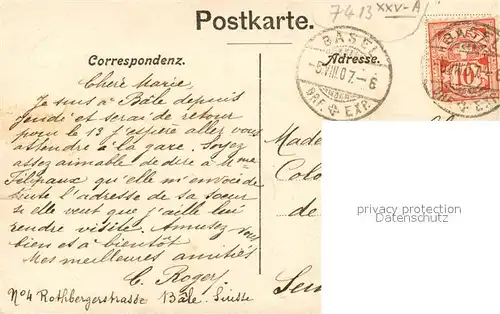 7413 XXV-A
Postkarte.
Correspondenz.
Adresse.
BASEL
-5.VIII.07.-6
BRF. EXP.
BASEL
10
Chère Marie,
Je suis à Bâle depuis
jeudi et serai de retour
pour le 13 j'espère aller vous
attendre à la gare. Soyez
assez aimable de dire à Mme
Filipaux qu'elle m'envoie de
suite l'adresse de sa soeur
si elle veut que j'aille lui
rendre visite. Amusez vous
bien et à bientôt
Mes meilleures amitiés
C. Rogers
No 4 Rothbergerstrasse Bâle. Suisse
Made
Colo
de
privacy protection
datenschutz